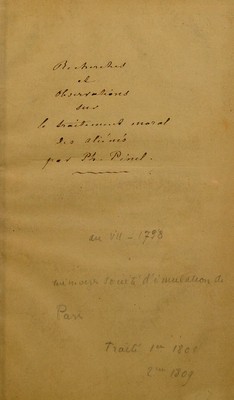 Recherches
et
observations
sur
le traitement moral
des aliénés
par Ph. Pinel.
an VII - 1798
mémoires société d'émulation de
Paris
Traité 1re 1801
2me 1809